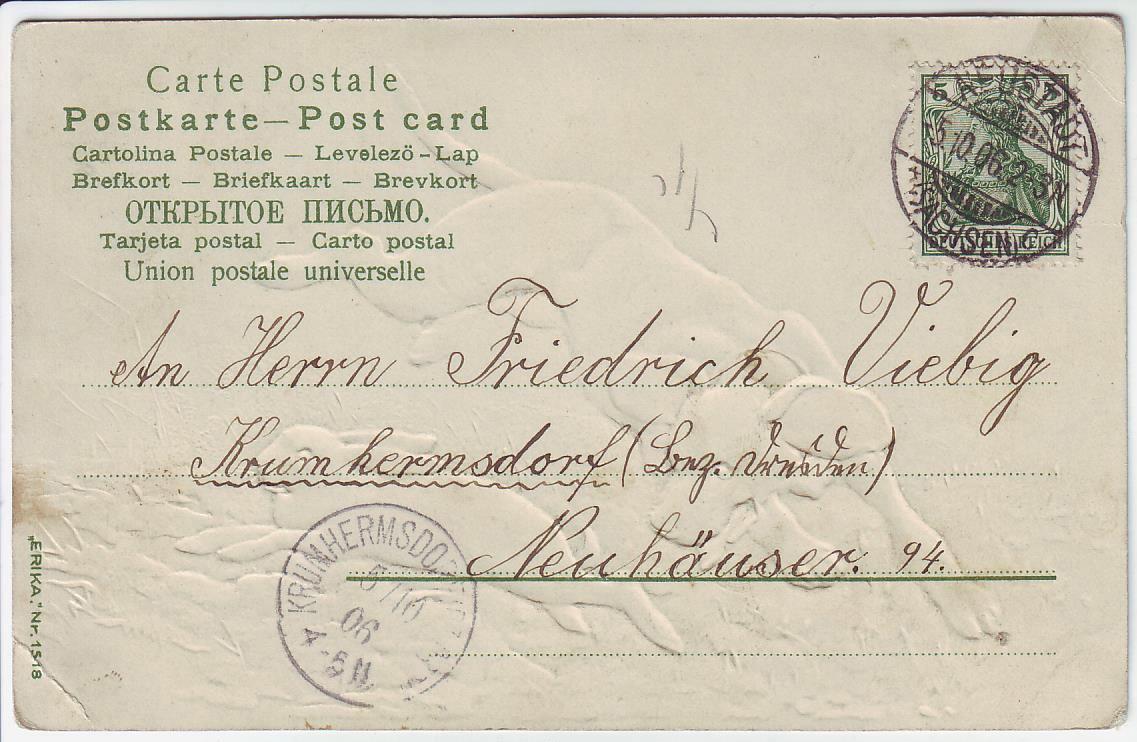 Carte Postale
Postkarte — Post card
Cartolina Postale — Levelezö-Lap
Brefkort — Briefkaart — Brevkort
ОТКРЫТОЕ ПИСЬМО.
Tarjeta postal — Carto postal
Union postale universelle
5
NEUSTADT
5.10.06. 2-3N
(SACHSEN)
DEUTSCHES REICH
An Herrn Friedrich Viebig
Krumhermsdorf (Bez. Dresden)
Neuhäuser. 94.
KRUMHERMSDORF
5/10
06
4-5N
„ERIKA." Nr. 1518